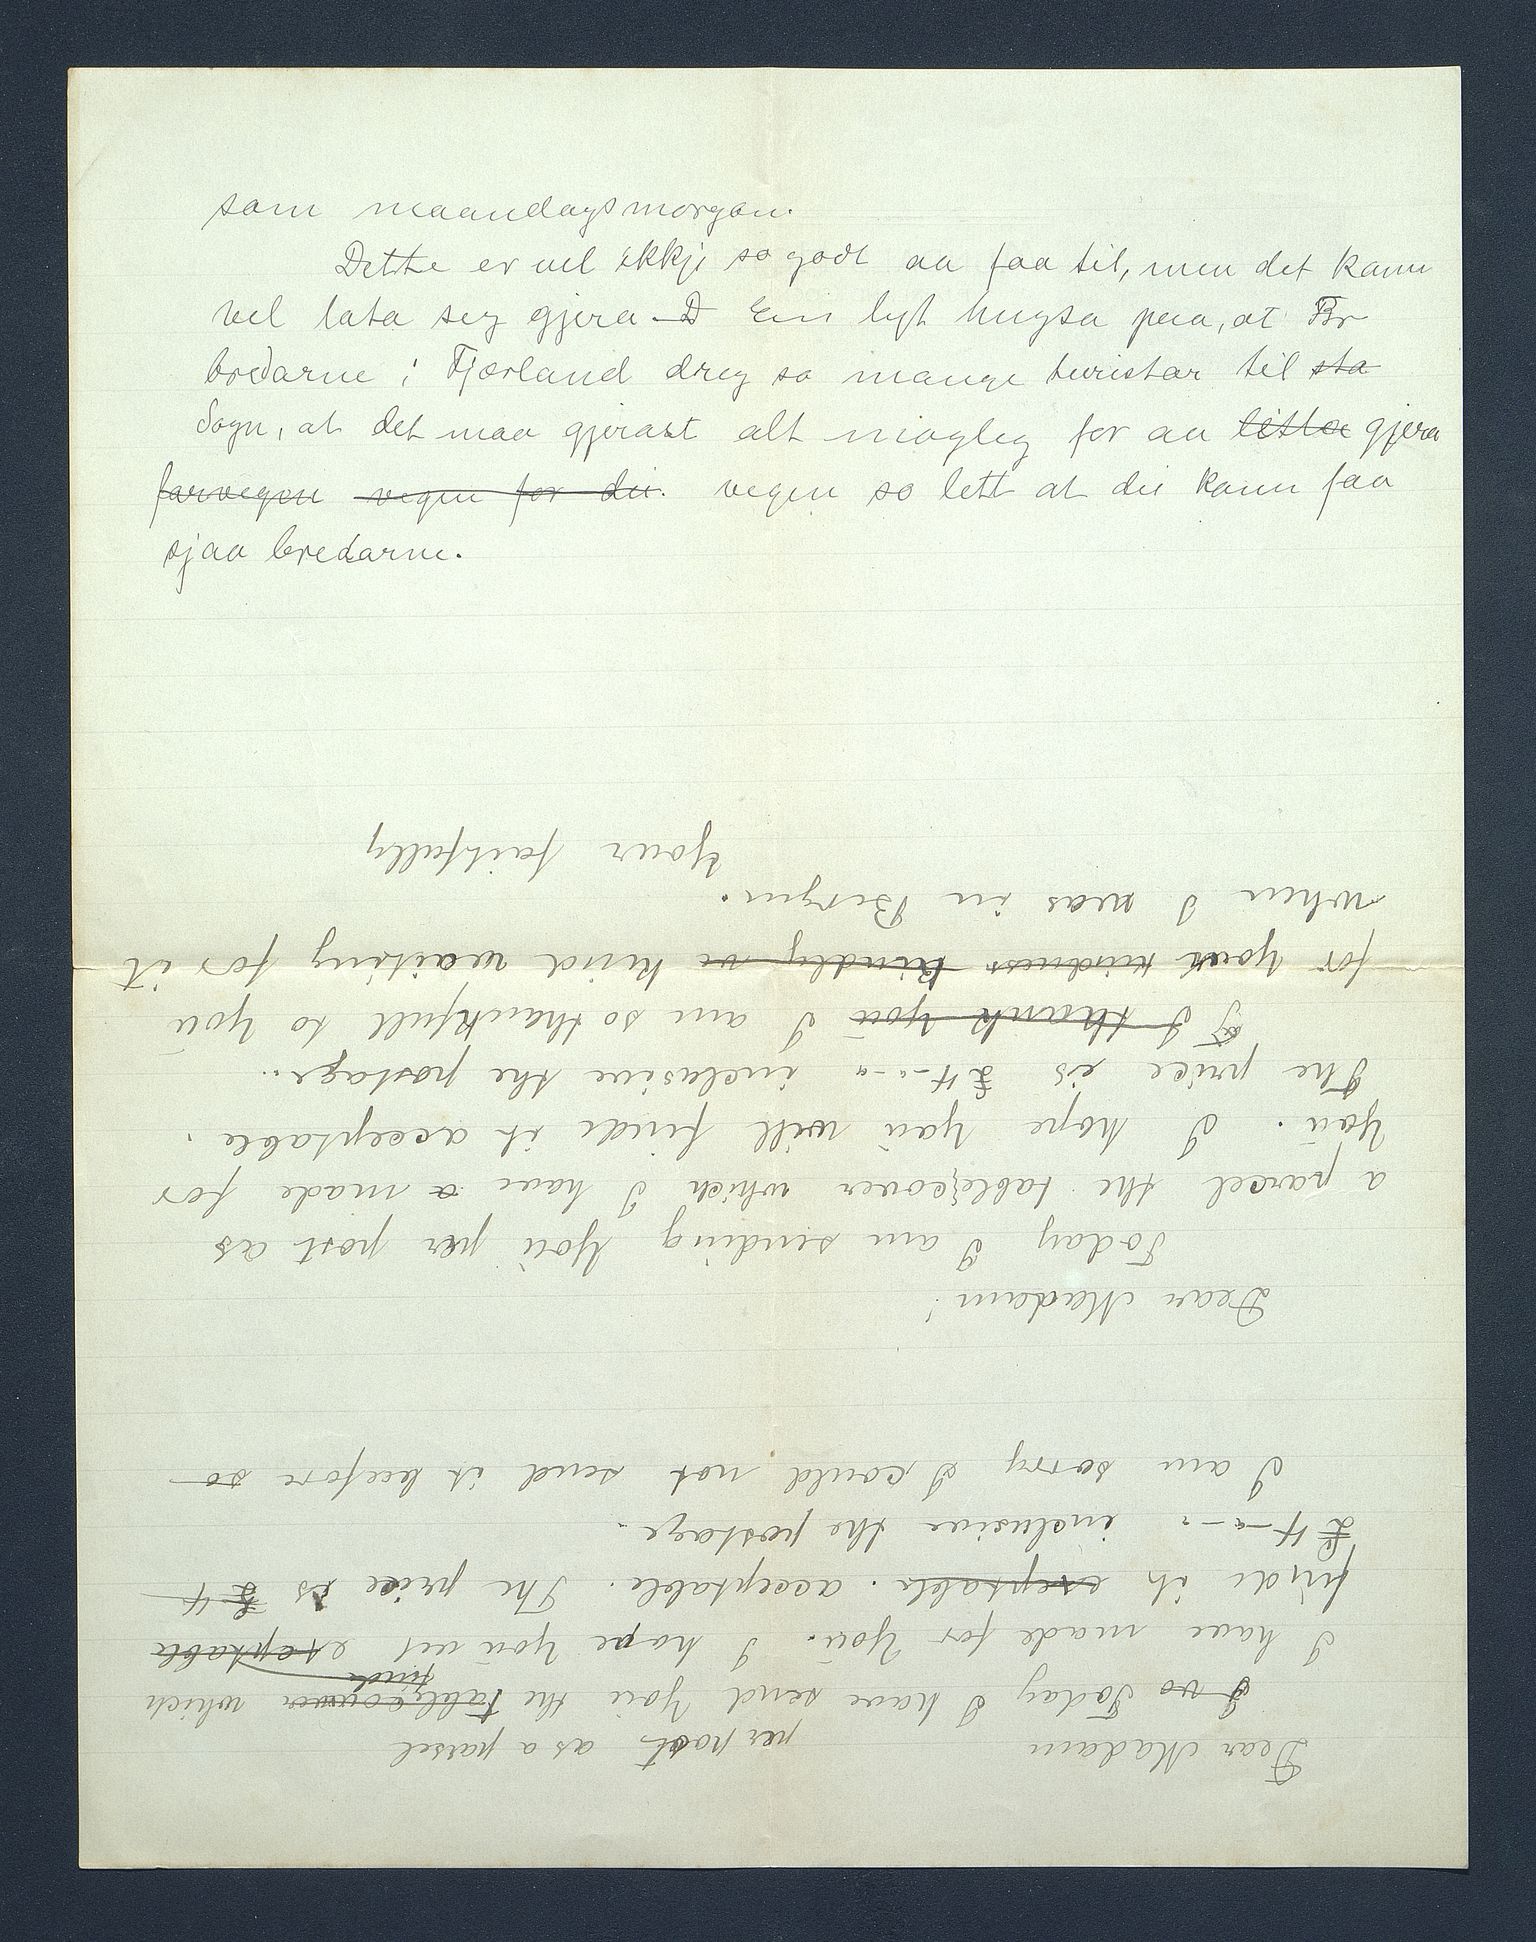 som maandagsmorgon.
Dette er vel ikkje so godt aa faa til, men det kann
vel lata seg gjera. D Ein lyt hugsa paa, at Br
bredarne i Fjærland dreg so mange turistar til sta
Sogn, at det maa gjerast alt mogleg for aa letta gjera
farvegen vegen for dei. vegen so lett at dei kann faa
sjaa bredarne.
Dear Madam
per post as a parsel
I vo Today I have send You the tablecower which
finde
I have made for You. I hope You vil eseptable
finde it eseptable. acceptable. The price is £ 4
£ 4-"-" inclusive the postage.
I am sorry I could not send it beefore so
Dear Madam!
Today I am sending You per post as
a parsel the tablecover which I have a made for
You. I hope You will finde it acceptable.
The price is £ 4-"-" inclusive the postage.
I thank You I am so thankfull to You
for Your kindness kindly w kind waiting for it
when I was in Bergen.
Your faithfully